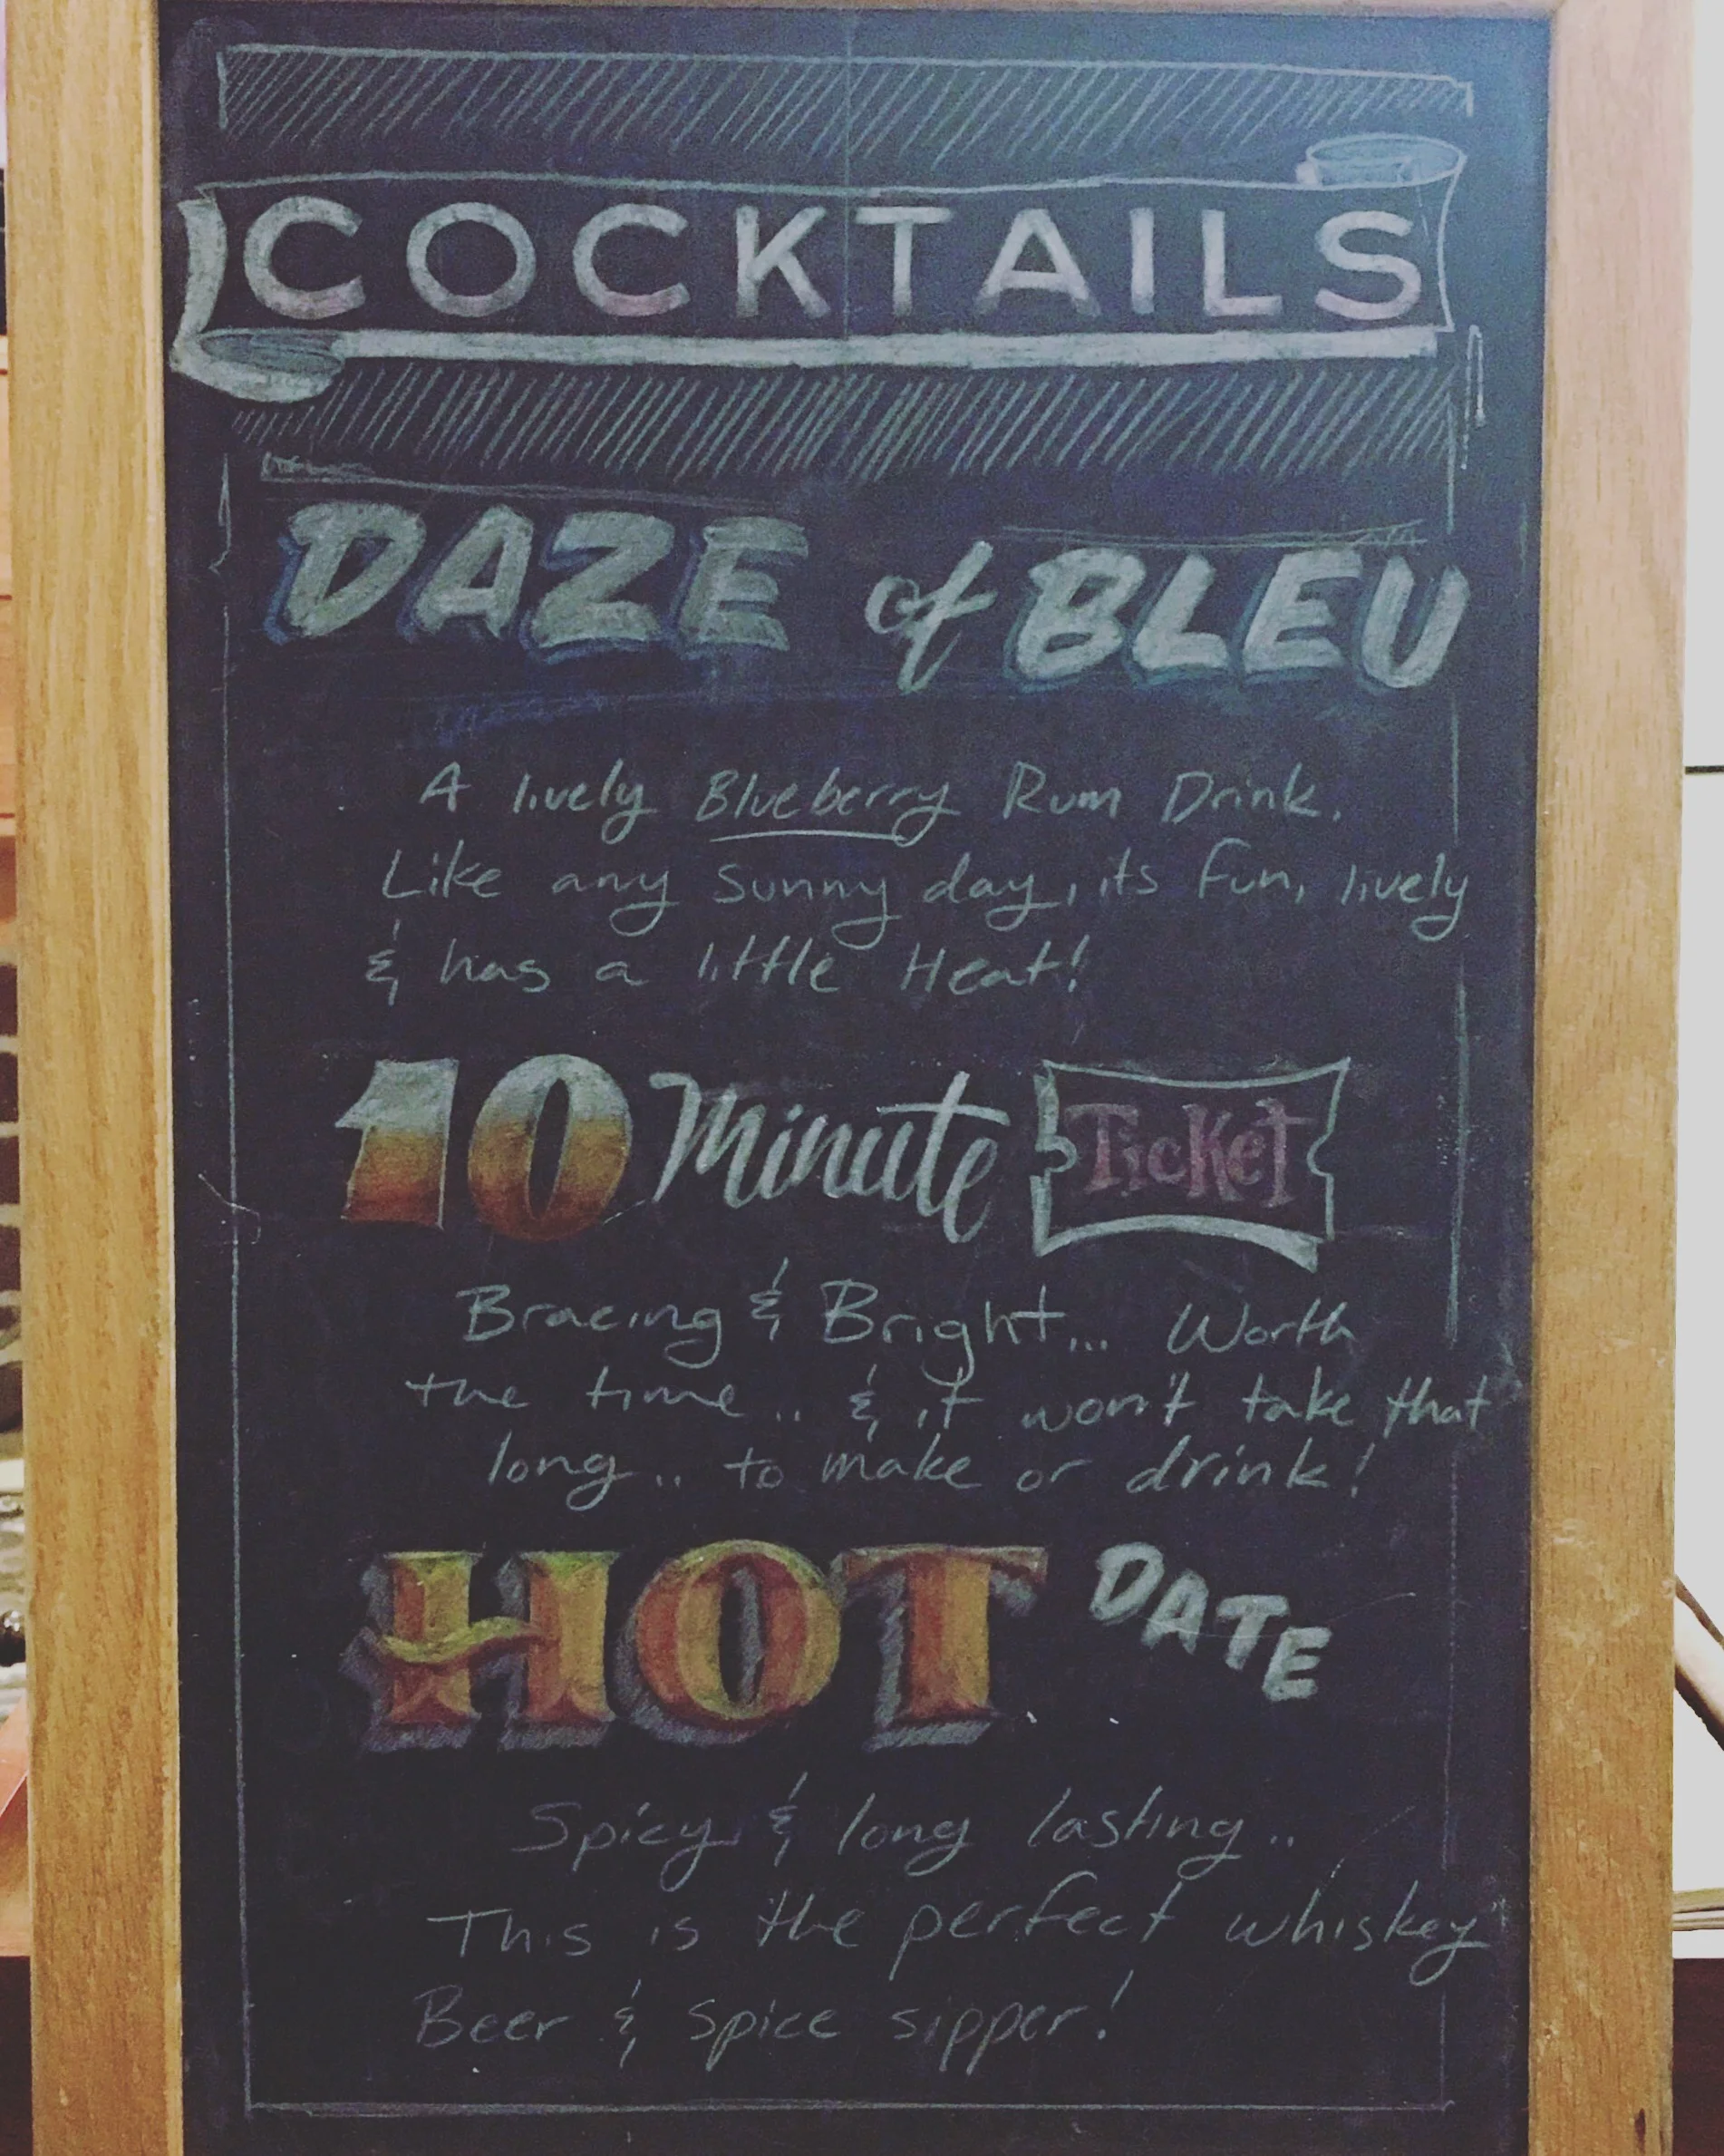 COCKTAILS
DAZE of BLEU
A lively Blueberry Rum Drink.
Like any sunny day, its fun, lively
& has a little Heat!
10 Minute Ticket
Bracing & Bright... Worth
the time.. & it won't take that
long.. to make or drink!
HOT DATE
Spicy & long lasting..
This is the perfect whiskey
Beer & Spice sipper!